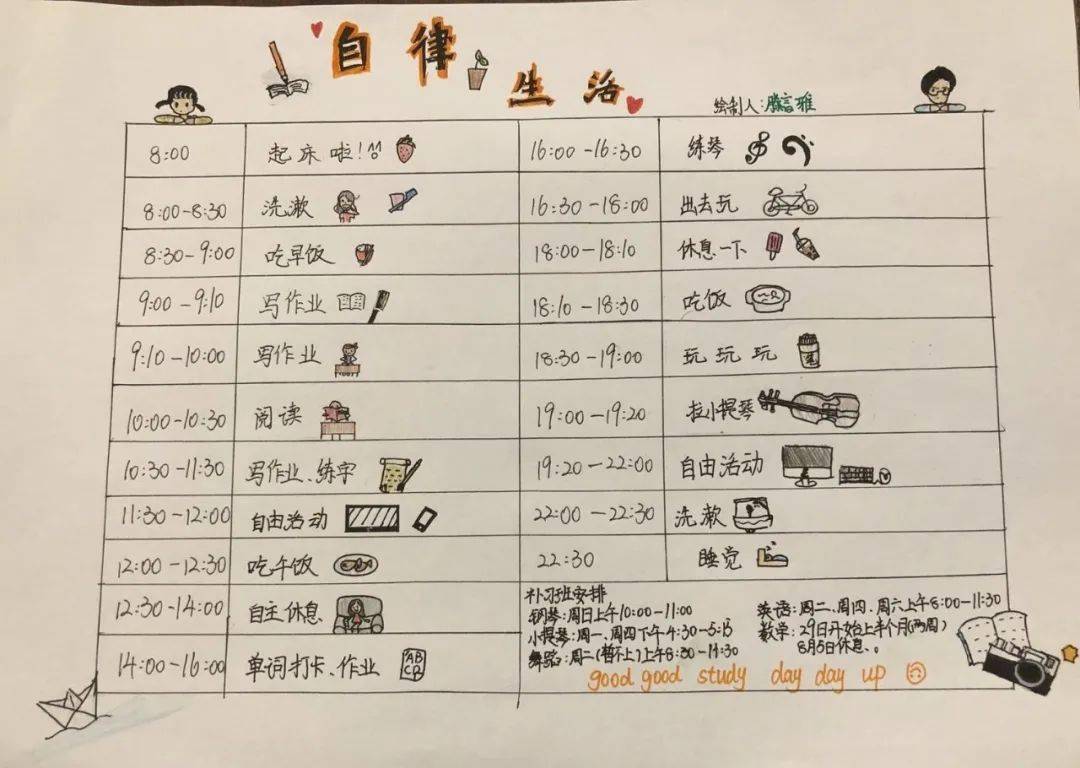 自律
生活
绘制人:滕言雅
8:00 起床啦!
8:00-8:30 洗漱
8:30-9:00 吃早饭
9:00-9:10 写作业
9:10-10:00 写作业
10:00-10:30 阅读
10:30-11:30 写作业、练字
11:30-12:00 自由活动
12:00-12:30 吃午饭
12:30-14:00 自主休息
14:00-16:00 单词打卡、作业
AB
CD
16:00-16:30 练琴
16:30-18:00 出去玩
18:00-18:10 休息一下
18:10-18:30 吃饭
18:30-19:00 玩玩玩
19:00-19:20 拉小提琴
19:20-22:00 自由活动
22:00-22:30 洗漱
22:30 睡觉
补习班安排
钢琴:周日上午10:00-11:00
小提琴:周一、周四下午4:30-5:15
舞蹈:周二(暂不上)上午8:30-11:30
英语:周二、周四、周六上午8:00-11:30
数学:29日开始上半个月(两周)
8月5日休息。。
good good study day day up